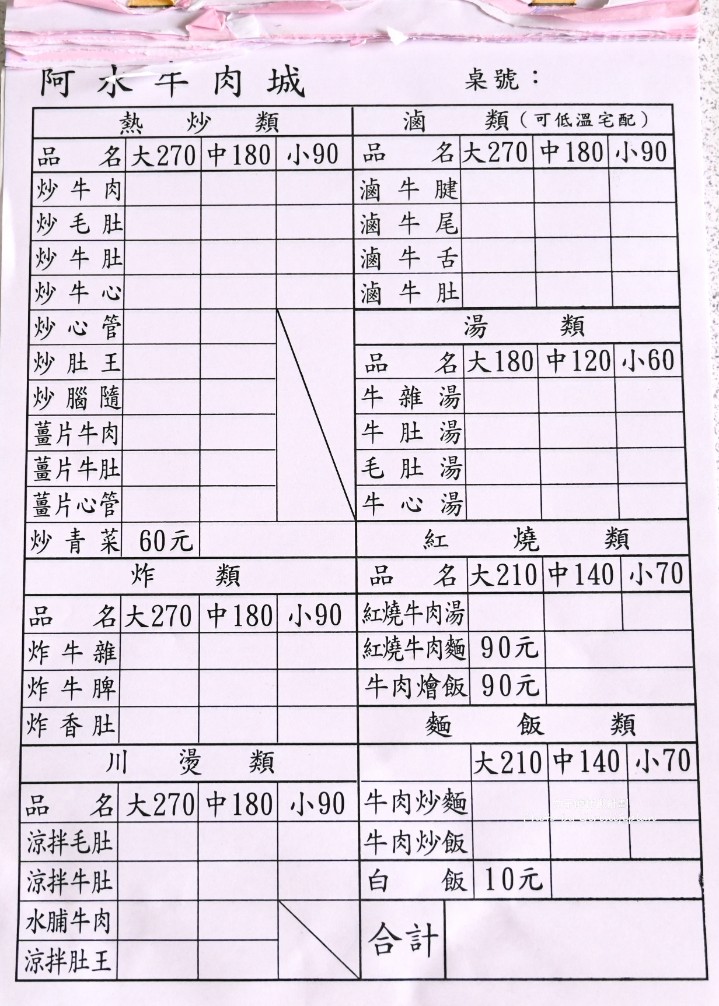 阿水牛肉城 桌號：
熱炒類
品名 大270 中180 小90
炒牛肉
炒毛肚
炒牛肚
炒牛心
炒心管
炒肚王
炒腦隨
薑片牛肉
薑片牛肚
薑片心管
炒青菜 60元
炸類
品名 大270 中180 小90
炸牛雜
炸牛脾
炸香肚
川燙類
品名 大270 中180 小90
涼拌毛肚
涼拌牛肚
水脯牛肉
涼拌肚王
滷類（可低溫宅配）
品名 大270 中180 小90
滷牛腱
滷牛尾
滷牛舌
滷牛肚
湯類
品名 大180 中120 小60
牛雜湯
牛肚湯
毛肚湯
牛心湯
紅燒類
品名 大210 中140 小70
紅燒牛肉湯
紅燒牛肉麵 90元
牛肉燴飯 90元
麵飯類
大210 中140 小70
牛肉炒麵
牛肉炒飯
白飯 10元
合計